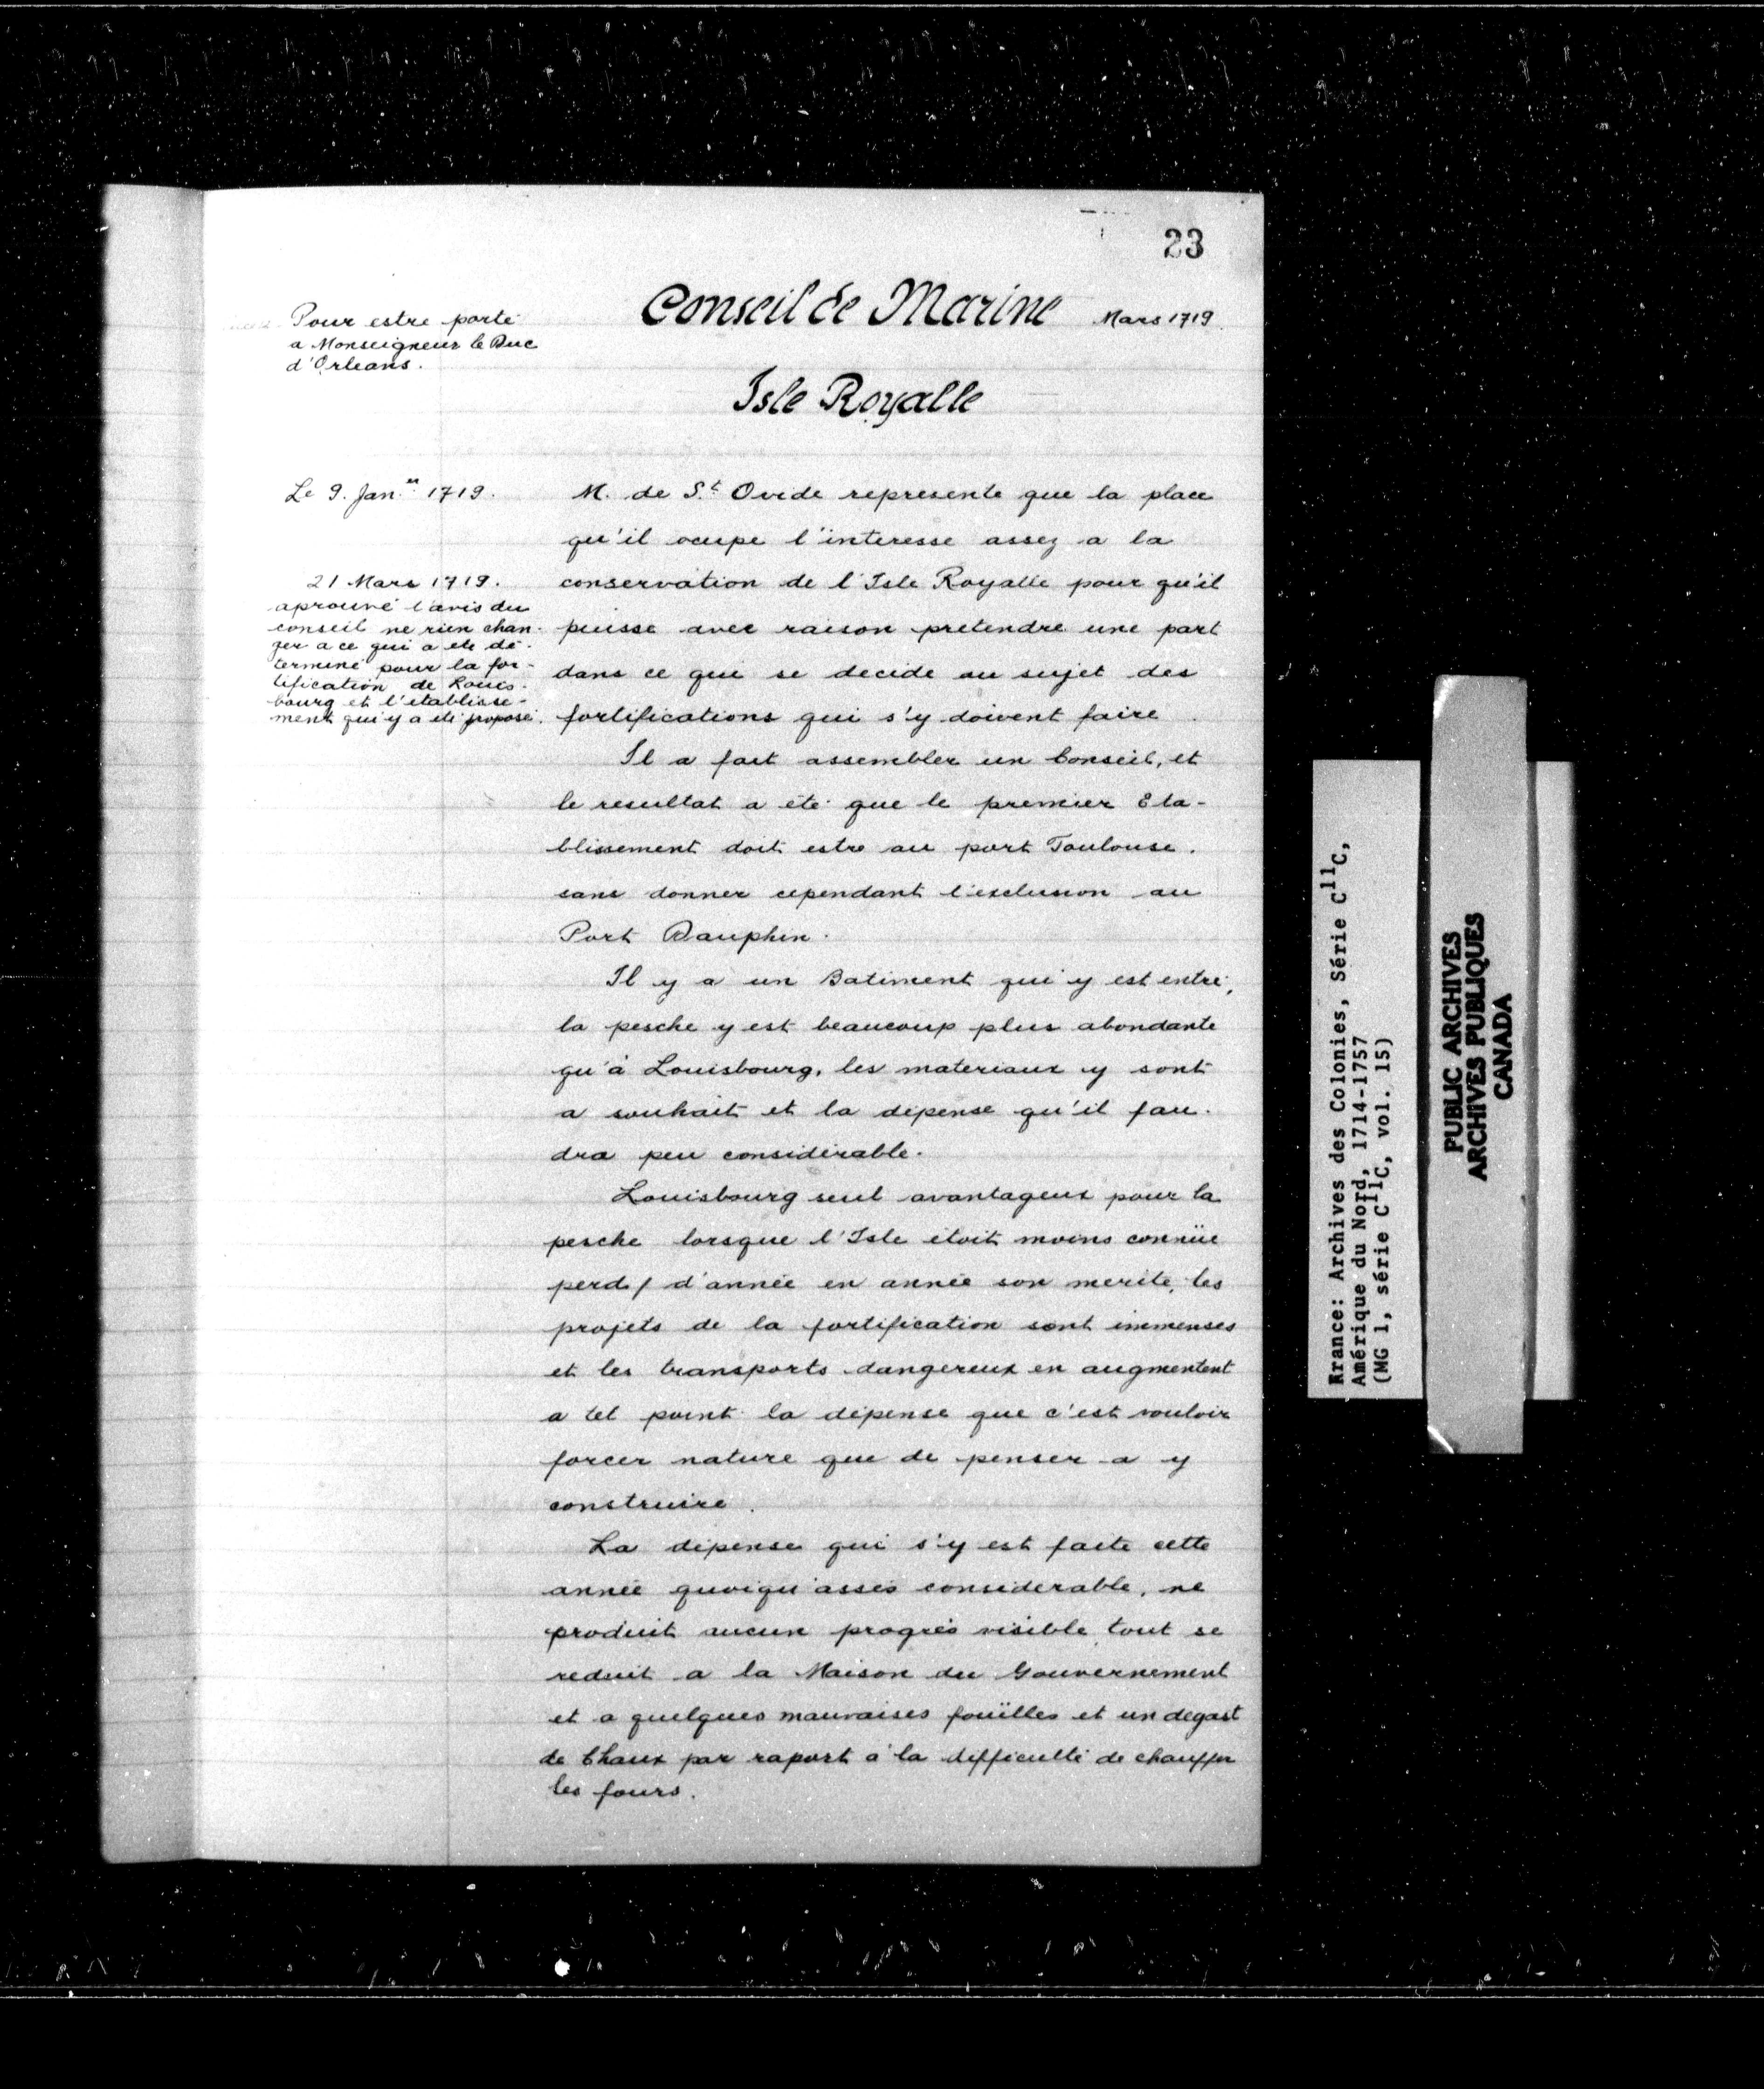 23
Conseil de Marine Mars 1719
Isle Royalle
Pour estre porté
a Monseigneur le Duc
d'Orleans.
Le 9. Jan.er 1719.
21 Mars 1719.
aprouvé l'avis du
conseil ne rien chan-
ger a ce qui a ete dé-
terminé pour la for-
tification de Louis-
bourg et l'etablisse-
ment qui y a été proposé.
M. de S.t Ovide represente que la place
qu'il ocupe l'interesse assez a la
conservation de l'Isle Royalle pour qu'il
puisse avec raison pretendre une part
dans ce qui se decide au sujet des
fortifications qui s'y doivent faire.
Il a fait assembler un Conseil, et
le resultat a été que le premier Eta-
blissement doit estre au port Toulouse.
sans donner cependant l'exclusion au
Port Dauphin.
Il y a un Batiment qui y est entré,
la pesche y est beaucoup plus abondante
qu'à Louisbourg, les materiaux y sont
a souhait et la dépense qu'il fau-
dra peu considérable.
Louisbourg seul avantageux pour la
pesche lorsque l'Isle étoit moins connüe
perd/ d'année en année son merite, les
projets de la fortification sont immenses
et les transports dangereux en augmentent
a tel point la dépense que c'est vouloir
forcer nature que de penser a y
construire.
La dépense qui s'y est faite cette
année quoiqu'assés considerable, ne
produit aucun progrès visible, tout se
reduit a la Maison du Gouvernement
et a quelques mauvaises foüilles et un degast
de Chaux par raport à la difficulté de chauffer
les fours.
France: Archives des Colonies, Série C11C,
Amérique du Nord, 1714-1757
(MG 1, série C11C, vol. 15)
PUBLIC ARCHIVES
ARCHIVES PUBLIQUES
CANADA